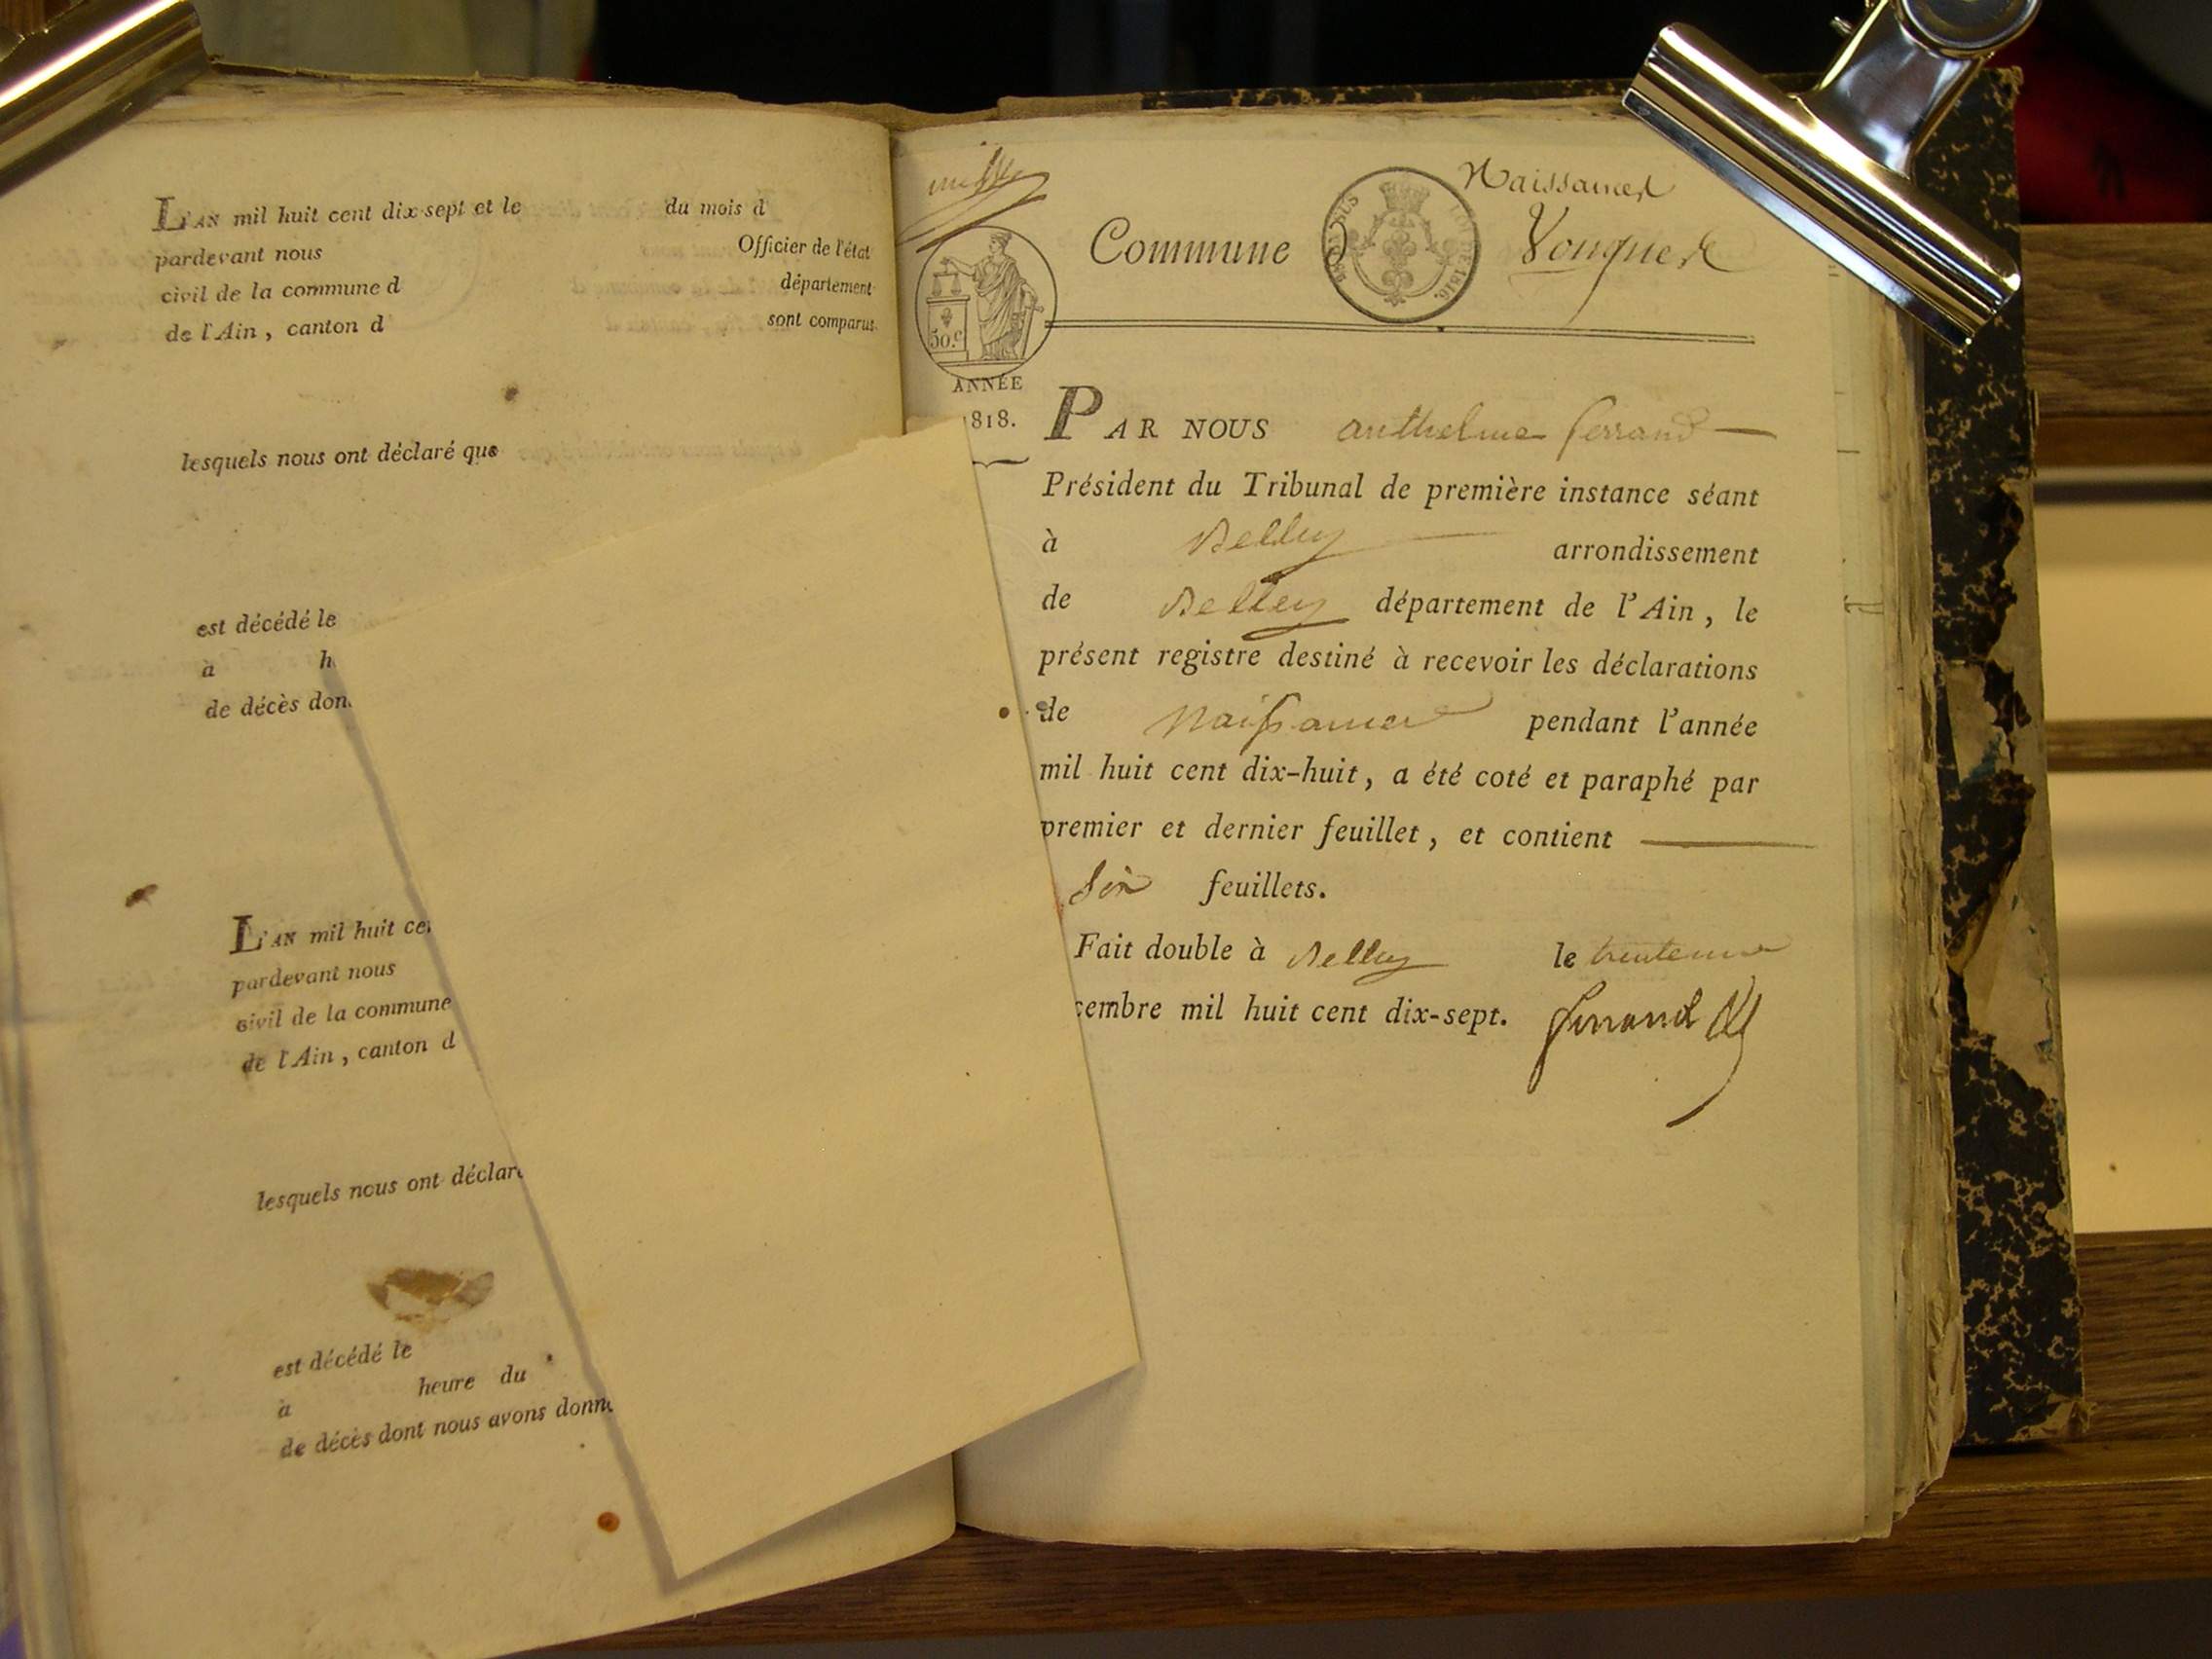 L'AN mil huit cent dix-sept et le du mois d
pardevant nous Officier de l'état
civil de la commune d département
de l'Ain, canton d sont comparus
lesquels nous ont déclaré que
est décédé le
à h
de décès don
L'AN mil huit ce
pardevant nous
civil de la commune
de l'Ain, canton d
lesquels nous ont déclar
est décédé le
à heure du
de décès dont nous avons donn
Naissances
Commune D
50.c
ANNÉE
1818.
PAR NOUS anthelme ferrand
Président du Tribunal de première instance séant
à Belley arrondissement
de Belley département de l'Ain, le
présent registre destiné à recevoir les déclarations
de Naissance pendant l'année
mil huit cent dix-huit, a été coté et paraphé par
premier et dernier feuillet, et contient
Six feuillets.
Fait double à Belley le trente
cembre mil huit cent dix-sept. ferrand